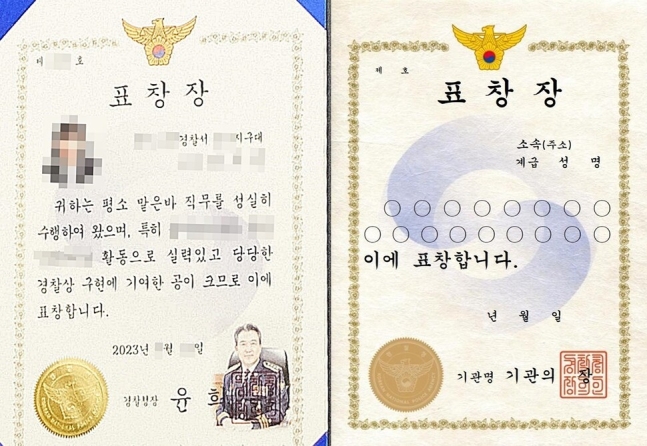 제 호
표 창 장
경찰서 지구대
귀하는 평소 맡은바 직무를 성실히
수행하여 왔으며, 특히
활동으로 실력있고 당당한
경찰상 구현에 기여한 공이 크므로 이에
표창합니다.
2023년 월 일
경찰청장 윤 희
제 호
표 창 장
소속(주소)
계급 성 명
○ ○ ○ ○ ○ ○ ○ ○
○ ○ ○ ○ ○ ○ ○ ○ ○
이에 표창합니다.
년 월 일
기관명 기관의 장